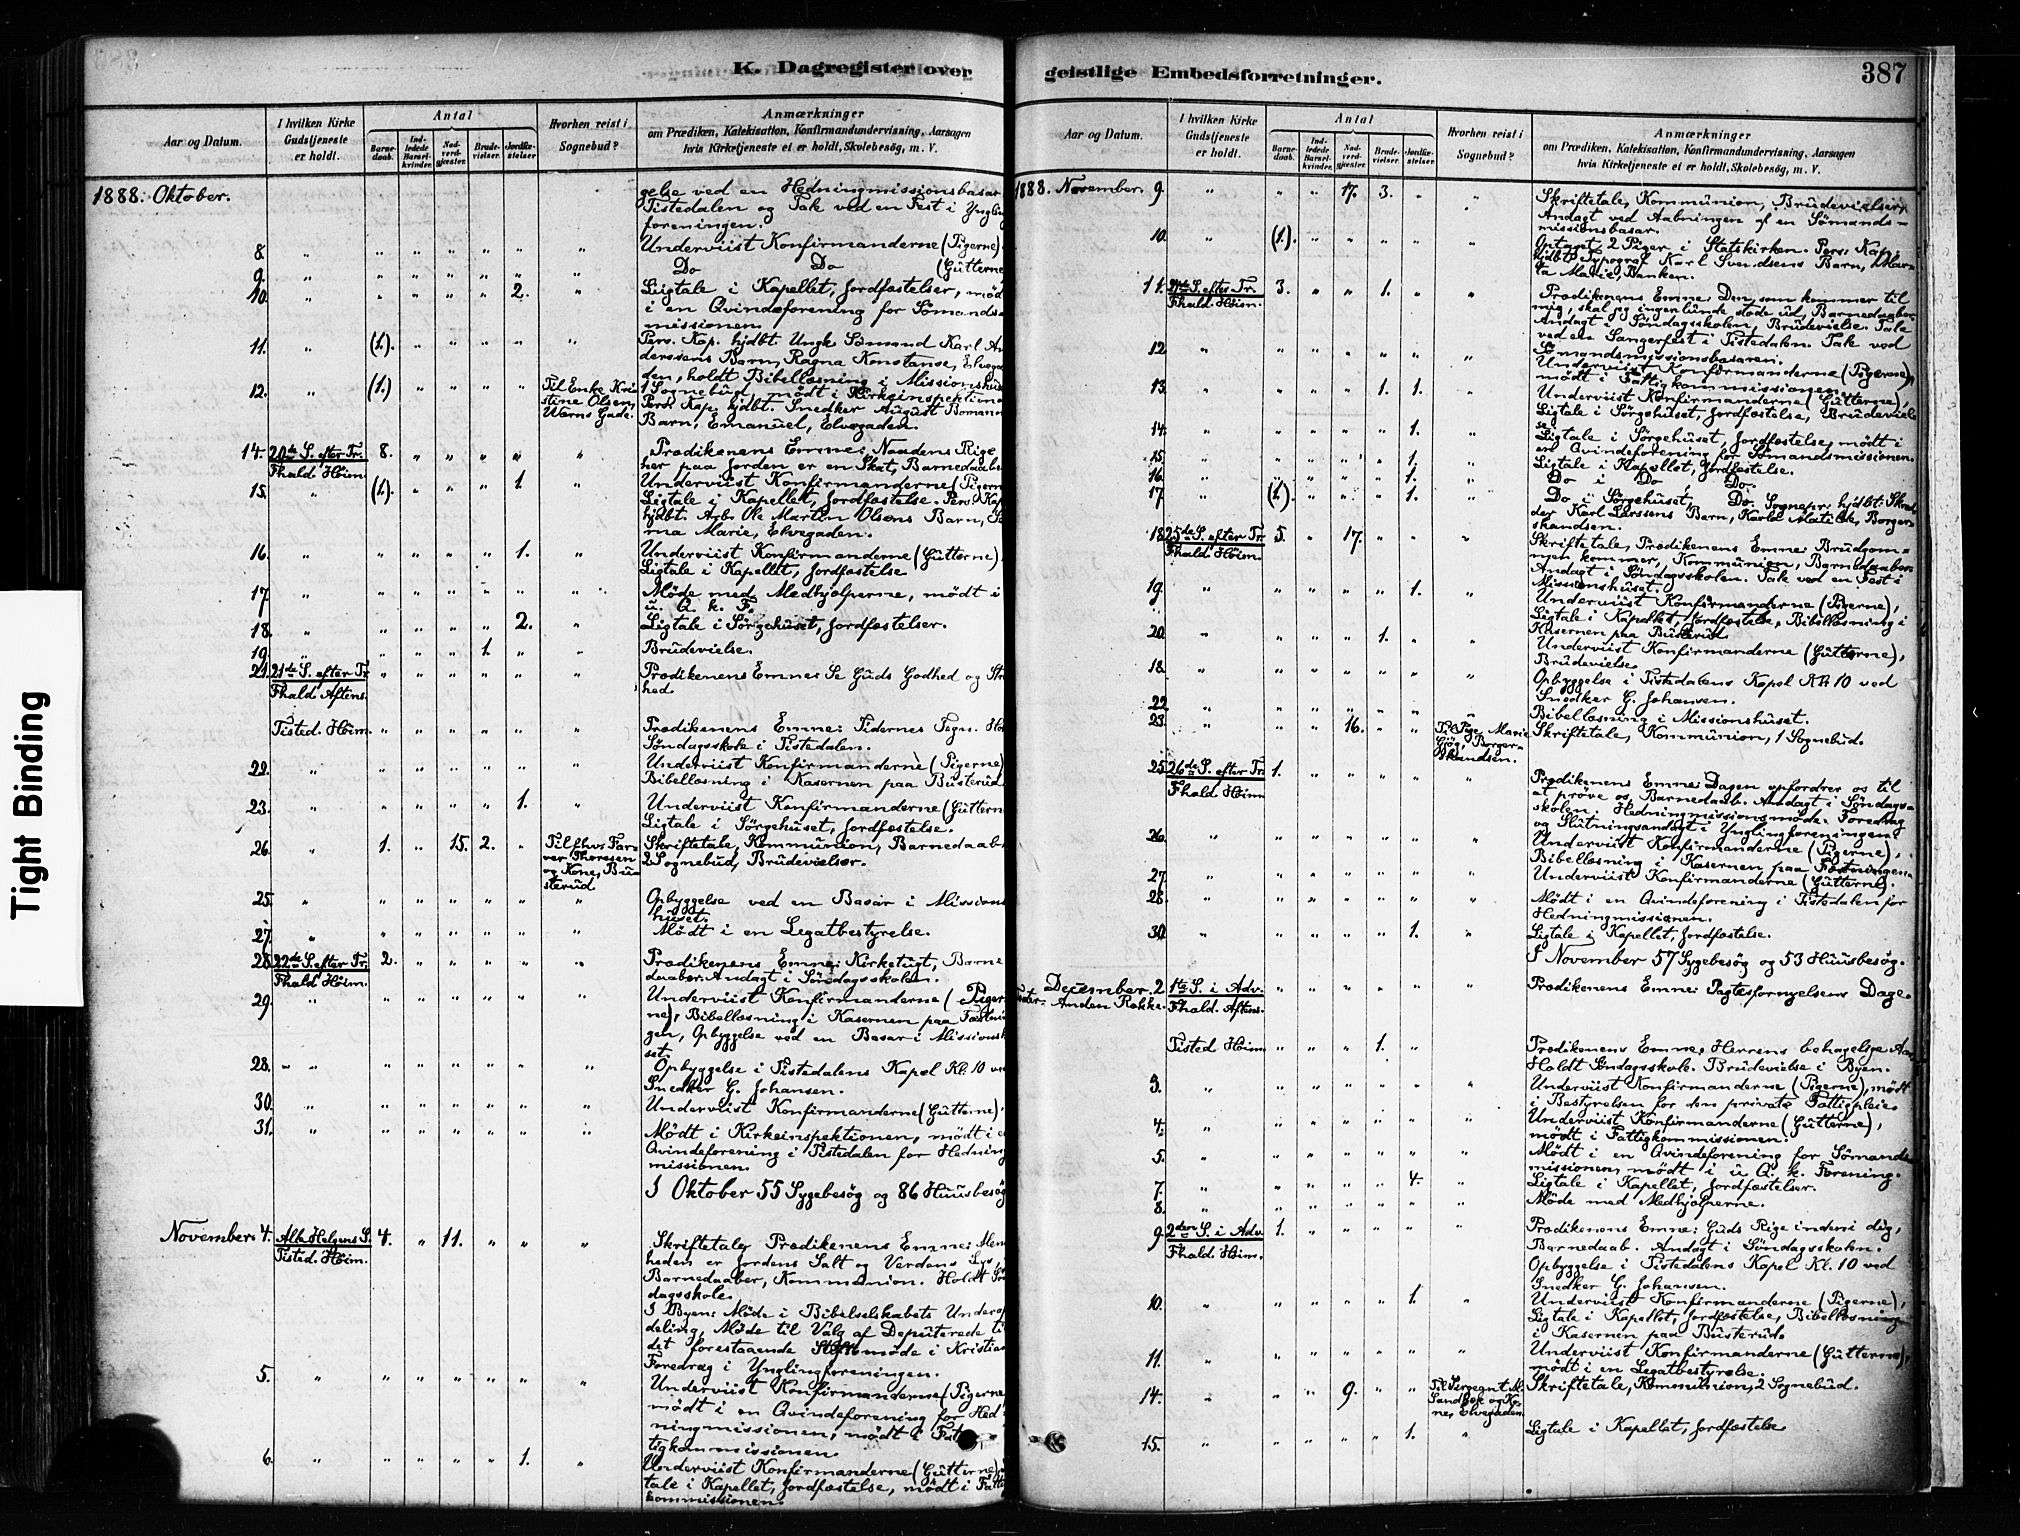 Tight Binding
K. Dagregister over
Aar og Datum.
I hvilken Kirke
Gudstjeneste
er holdt.
Antal
Barne-
daab.
Ind-
ledede
Barsel-
kvinder.
Nad-
verd-
gjæster.
Brude-
vielser.
Jordfæ-
stelser.
Hvorhen reist i
Sognebud?
Anmærkninger
om Prædiken, Katekisation, Konfirmandundervisning, Aarsagen
hvis Kirketjeneste ei er holdt, Skolebesøg, m. V.
1888. Oktober.
gelse ved en Hedningmissionsbasar
Tistedalen og Tak ved en Fest i Yngling
foreningen.
8. Underviist Konfirmanderne (Pigerne)
9. Do Do (Gutterne
10. 2. Ligtale i Kapellet, Jordfæstelser, mød
i en Qvindeforening for Sömands
missionen.
11. (1.) Pers. Kap. hjdbt. Ungk. Sömand Karl An
derssens Barn, Ragna Konstanse, Elvega
den, holdt Bibellæsning i Missionshus
12. (1.) Til Enke Kri-
stine Olsen,
Werns Gade.
1 Sognebud, mødt i Kirkeinspektion
Pers. Kap. hjdbt. Snedker August Bomans
Barn, Emanuel, Elvegaden.
14. 20de S. efter Tr. 8. Prædikenens Emne: Naadens Rige
Fhald Høim. her paa Jorden er en Skat, Barnedaabe
15. (1.) 1. Underviist Konfirmanderne (Pigerne
Ligtale i Kapellet, Jordfæstelse. Pers. Kap
hjdbt. Arb. Ole Martin Olsens Barn,
ma Marie, Elvegaden.
16. 1. Underviist Konfirmanderne (Gutterne)
Ligtale i Kapellet, Jordfæstelse
17. Møde med Medhjælperne, mødt i
u. Q. k. F.
18. 2. Ligtale i Sørgehuset, Jordfæstelser.
19. 1. Brudevielse.
21. 21de S. efter Tr. Prædikenens Emne: Se Guds Godhed og Stre
Fhald Aftens. hed.
Tisted. Høim. Prædikenens Emne: Tidernes Tegn. Ho
Søndagsskole i Tistedalen.
22. Underviist Konfirmanderne (Pigerne)
Bibellæsning i Kasernen paa Busterud.
23. 1. Underviist Konfirmanderne (Gutterne
Ligtale i Sørgehuset, Jordfæstelse.
26. 1. 15. 2. Til fhv. Far-
ver Thoresen
og Kone, Bu-
sterud
Skriftetale, Kommunion, Barnedaab,
2 Sognebud, Brudevielser.
25. Opbyggelse ved en Basar i Missions
huset.
27. Mødt i en Legatbestyrelse.
28. 22de S. efter Tr. 2. Prædikenens Emne: Kirketugt, Barne
Fhald Høim. daaber. Andagt i Søndagsskolen.
29. Underviist Konfirmanderne (Piger
ne), Bibellæsning i Kasernen paa Fæstnin
gen, Opbyggelse ved en Basar i Missionsh
set.
28. Opbyggelse i Tistedalens Kapel Kl. 10 ved
Snedker G. Johansen.
30. Underviist Konfirmanderne (Gutterne).
31. Mødt i Kirkeinspektionen, mødt i e
Qvindeforening i Tistedalen for Hedning
missionen.
I Oktober 55 Sygebesøg og 86 Huusbesøg
November 4. Alle Helgens S. 4. 11. Skriftetale, Prædikenens Emne: Men
Tisted. Høim. heden er Jordens Salt og Verdens Lys,
Barnedaaber, Kommunion. Holdt Søn
dagsskole.
I Byen: Møde i Bibelselskabets Unde
deling, Møde til Valg af Deputerede ti
det forestaaende Stiftsmøde i Kristian
Foredrag i Ynglingforeningen.
5. Underviist Konfirmanderne (Pigerne
mødt i en Qvindeforening for Hed
ningmissionen, mødt i Fat
tigkommissionen.
6. 1. Underviist Konfirmanderne (Gutterne)
tale i Kapellet, Jordfæstelse, mødt i Fatti
kommissionen.
geistlige Embedsforretninger.
387
Aar og Datum.
I hvilken Kirke
Gudstjeneste
er holdt.
Antal
Barne-
daab.
Ind-
ledede
Barsel-
kvinder.
Nad-
verd-
gjæster.
Brude-
vielser.
Jordfæ-
stelser.
Hvorhen reist i
Sognebud?
Anmærkninger
om Prædiken, Katekisation, Konfirmandundervisning, Aarsagen
hvis Kirketjeneste ei er holdt, Skolebesøg, m. V.
1888. November. 9. 17. 3. Skriftetale, Kommunion, Brudevielser,
Andagt ved Aabningen af en Sömands-
missionsbasar.
10. (1.) Optaget 2 Piger i Statskirken. Pers. Kap.
hjdbt. Typograf Karl Svendsens Barn,
Marie Banken.
11. S. efter Tr. 3. 1. Prædikenens Emne: Den, som kommer til
Fhald. Høim. mig, skal jeg ingenlunde støde ud, Barnedaaber
Andagt i Søndagsskolen, Brudevielse. Tale
ved en Sangerfest i Tistedalen. Tak ved
Sömandsmissionsbasaren.
12. Underviist Konfirmanderne (Pigerne),
mødt i Fattigkommissionen.
13. 1. 1. Underviist Konfirmanderne (Gutterne),
Ligtale i Sørgehuset, Jordfæstelse, Brudeviel
se
14. 1. Ligtale i Sørgehuset, Jordfæstelse, mødt i
en Qvindeforening for Sömandsmissionen.
15. 1. Ligtale i Kapellet, Jordfæstelse.
16. 1. Do i Do Do.
17. (1.) 1. Do i Sørgehuset, Do. Sognepr. hjdbt. Skræd
der Karl Larssens Barn, Karla Matilde, Borger-
skandsen.
18. 25de S. efter Tr. 5. 17. Skriftetale, Prædikenens Emne: Brudgom-
Fhald Høim. men kommer, Kommunion, Barnedaaber.
Andagt i Søndagsskolen. Tak ved en Fest i
Missionshuset.
19. 1. Underviist Konfirmanderne (Pigerne),
Ligtale i Kapellet, Jordfæstelse, Bibellæsning i
Kasernen paa Busterud
20. 1. Underviist Konfirmanderne (Gutterne),
Brudevielse.
18. Opbyggelse i Tistedalens Kapel Kl. 10 ved
Snedker G. Johansen.
22. Bibellæsning i Missionshuset.
23. 16. Til Pige Marie
Borger-
skandsen.
Skriftetale, Kommunion, 1 Sognebud.
25. 26de S. efter Tr. 1. Prædikenens Emne: Dagen opfordrer os til
Fhald Høim at prøve os, Barnedaab. Andagt i Søndags-
skolen. Hedningmissionsmøde. Foredrag
og Slutningsandagt i Ynglingforeningen
26. Underviist Konfirmanderne (Pigerne),
Bibellæsning i Kasernen paa Fæstningen.
27. Underviist Konfirmanderne (Gutterne).
28. Mødt i en Qvindeforening i Tistedalen for
Hedningmissionen.
30. 1. Ligtale i Kapellet, Jordfæstelse.
I November 57 Sygebesøg og 53 Huusbesøg.
December 2 1ste S. i Adv. Prædikenens Emne: Pagtsfornyelsens Dage.
Anden Række. Fhald. Aftens.
Tisted Høim. 1. Prædikenens Emne: Herrens behagelige Aar
Holdt Søndagsskole. Brudevielse i Byen.
3. Underviist Konfirmanderne (Pigerne), mødt
i Bestyrelsen for den private Fattigpleie
4. Underviist Konfirmanderne (Gutterne),
mødt i Fattigkommissionen.
5. Mødt i en Qvindeforening for Sömands
missionen, mødt i u. Q. k. Forening.
7. 4. Ligtale i Kapellet, Jordfæstelser.
8. Møde med Medhjælperne.
9. 2den S. i Adv. 1. Prædikenens Emne: Guds Rige indeni dig,
Fhald Høim. Barnedaab. Andagt i Søndagsskolen.
Opbyggelse i Tistedalens Kapel Kl. 10 ved
Snedker G. Johansen.
10. 1. Underviist Konfirmanderne (Pigerne),
Ligtale i Kapellet, Jordfæstelse, Bibellæsning
i Kasernen paa Busterud.
11. Underviist Konfirmanderne (Gutterne),
mødt i en Legatbestyrelse.
14. 9. Til Sergeant M.
Sandbæk og Ko-
ne, Elvegaden.
Skriftetale, Kommunion, 2 Sognebud.
15. 1. Ligtale i Kapellet, Jordfæstelse